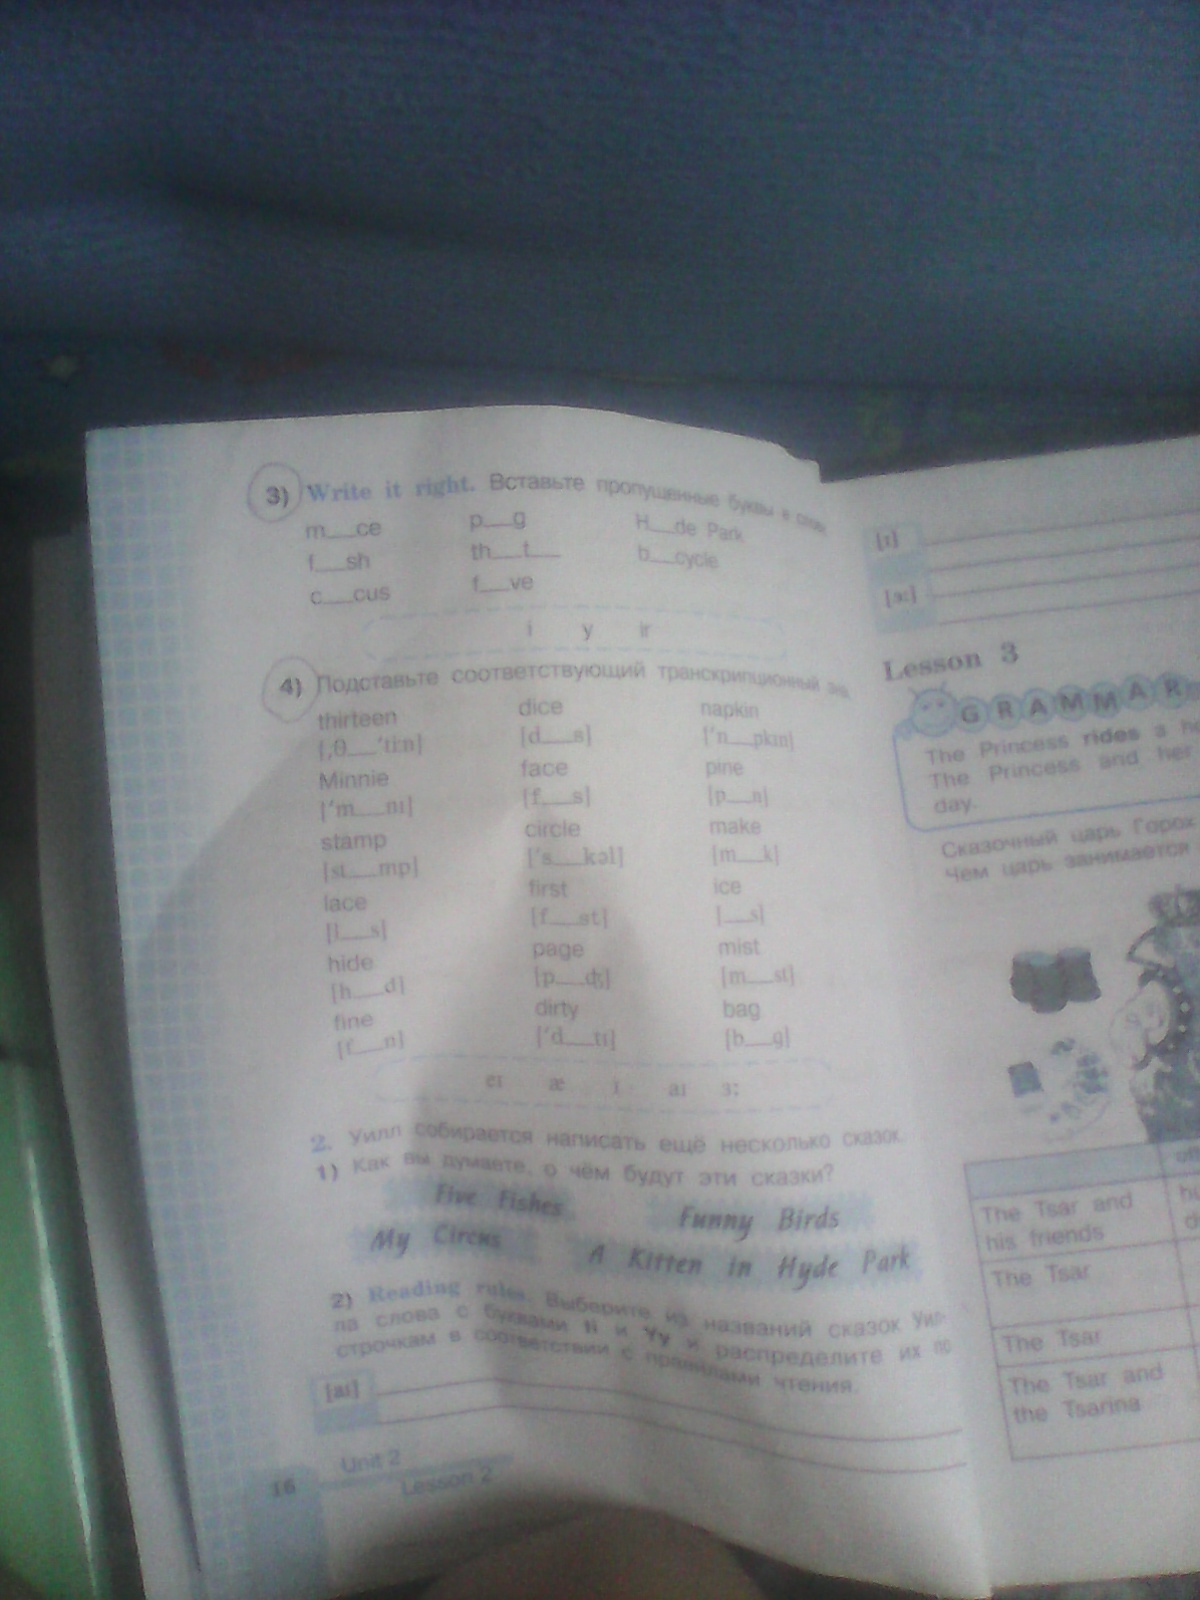 3) Write it right. Вставьте пропущенные буквы в слова
m__ce p__g H__de Park
f__sh th__t__ b__cycle
c__cus f__ve
i y ir
4) Подставьте соответствующий транскрипционный
thirteen dice napkin
[ˌθ__ˈtiːn] [d__s] [ˈn__pkɪn]
Minnie face pine
[ˈm__nɪ] [f__s] [p__n]
stamp circle make
[st__mp] [ˈs__kəl] [m__k]
lace first ice
[l__s] [f__st] [__s]
hide page mist
[h__d] [p__ʤ] [m__st]
fine dirty bag
[f__n] [ˈd__tɪ] [b__g]
eɪ æ ɪ aɪ ɜː
2. Уилл собирается написать ещё несколько сказок.
1) Как вы думаете, о чём будут эти сказки?
Five Fishes Funny Birds
My Circus A Kitten in Hyde Park
2) Reading rules. Выберите из названий сказок Уил-
ла слова с буквами Ii и Yy и распределите их по
строчкам в соответствии с правилами чтения.
[aɪ]
Unit 2
16 Lesson 2
[ɪ]
[ɜː]
Lesson 3
GRAMMAR
The Princess rides a
The Princess and her
day.
Сказочный царь Горох
Чем царь занимается
The Tsar and
his friends
The Tsar
The Tsar
The Tsar and
the Tsarina